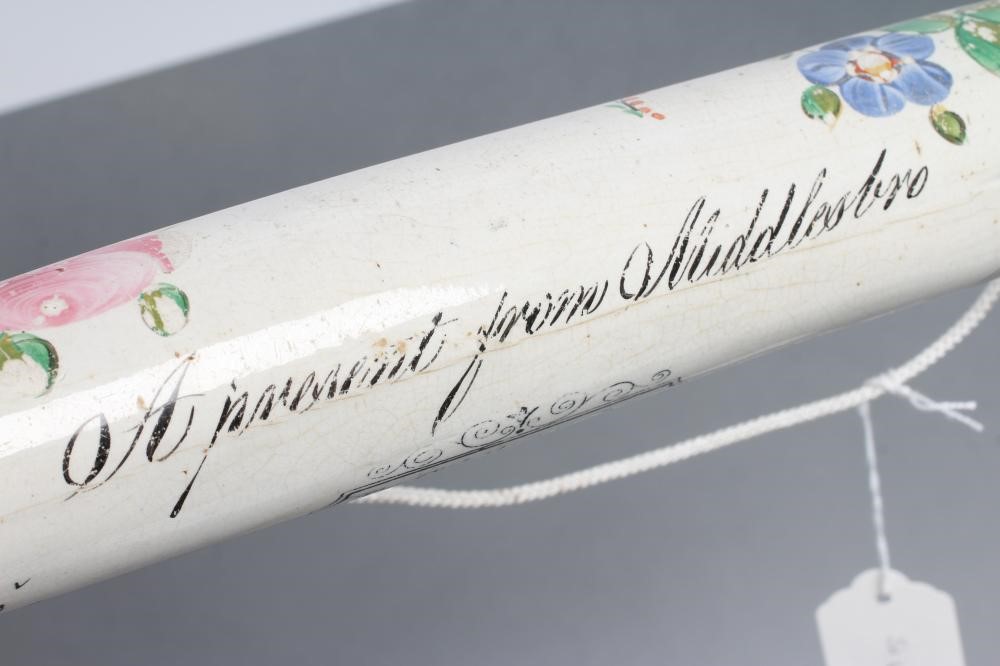 A present from Middlesbro